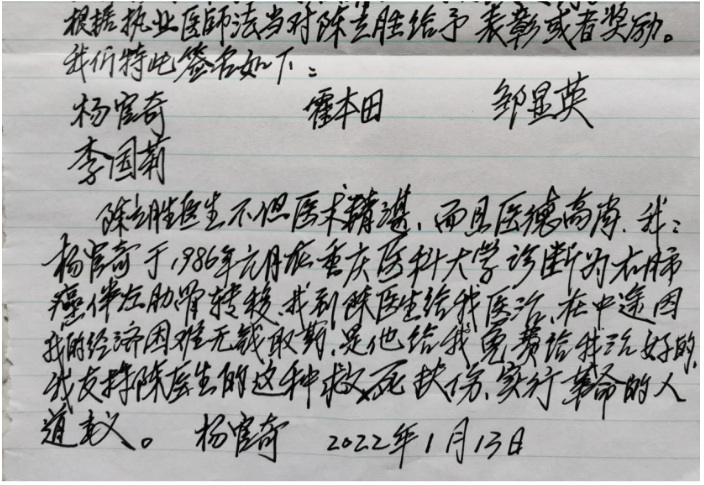 根据执业医师法当对陈立胜给予表彰或者奖励。
我们特此签名如下：
杨官奇 霍本田 邹显英
李国菊
陈立胜医生不但医术精湛，而且医德高尚，我：
杨官奇于1986年元月在重庆医科大学诊断为右肺
癌伴左肋骨转移，找到陈医生给我医治，在中途因
我的经济困难无钱取药，是他给我免费给我治好的，
我支持陈医生的这种救死扶伤、实行革命的人
道主义。 杨官奇 2022年1月13日